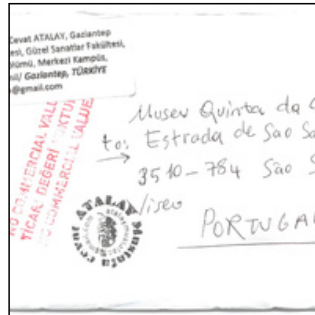 Cevat ATALAY, Gaziantep
esi, Güzel Sanatlar Fakültesi,
ölümü, Merkezi Kampüs,
mil/ Gaziantep, TÜRKİYE
@gmail.com
NO COMMERCIAL VALU
TİCARİ DEĞERİ YOKTUR
NO COMMERCIAL VALUE
Museu Quinta da C
to: Estrada de São Sa
3510-784 São S
Viseu
PORTUGAL
mustafa cevat ATALAY